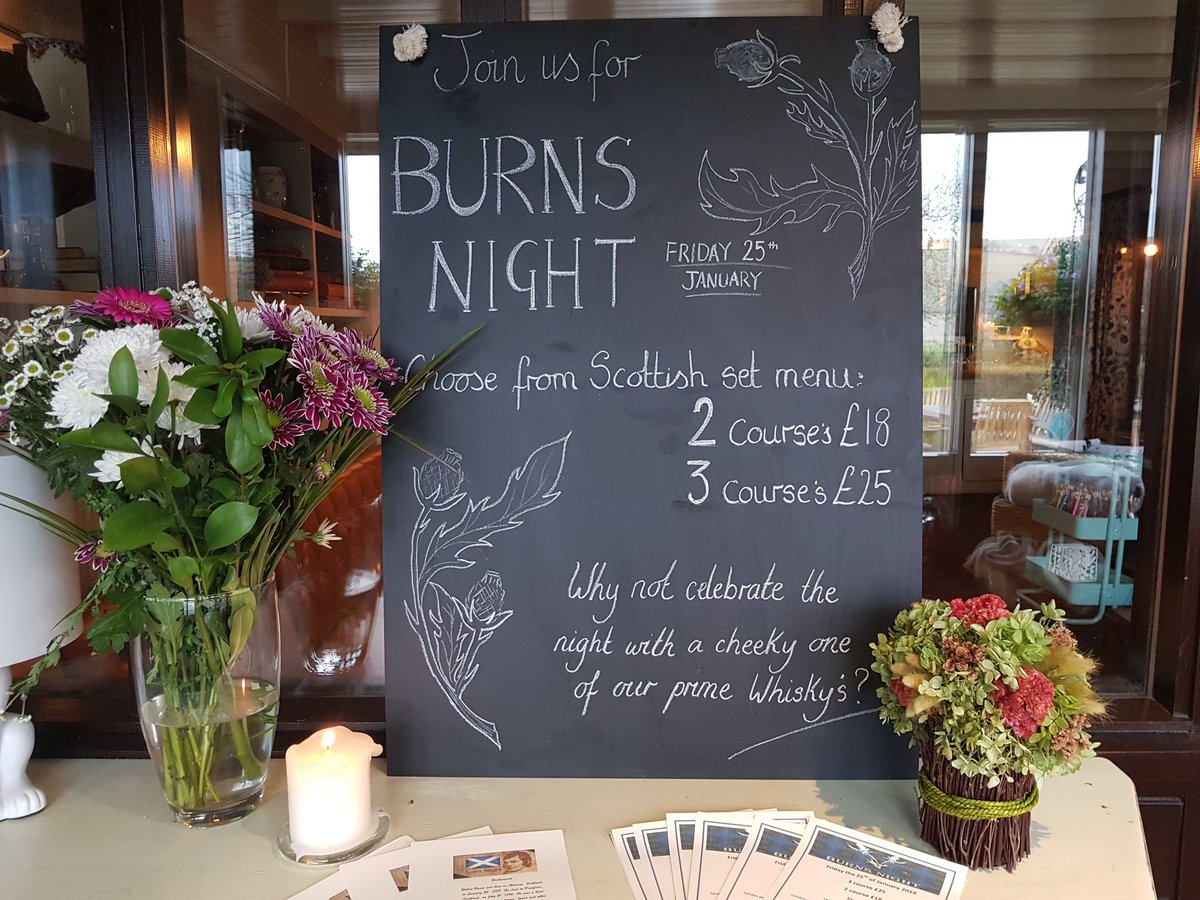 Join us for
BURNS
NIGHT
FRIDAY 25th
JANUARY
Choose from Scottish set menu:
2 Course's £18
3 Course's £25
Why not celebrate the
night with a cheeky one
of our prime Whisky's?
Burns Night
Background
BURNS NIGHT
Friday the 25th of January 2019
3 course £25
2 course £18